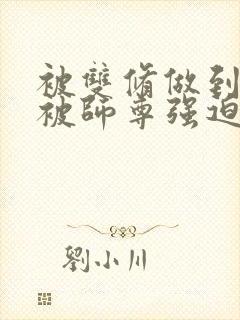 被雙脩做到
被師尊强迫
劉小川